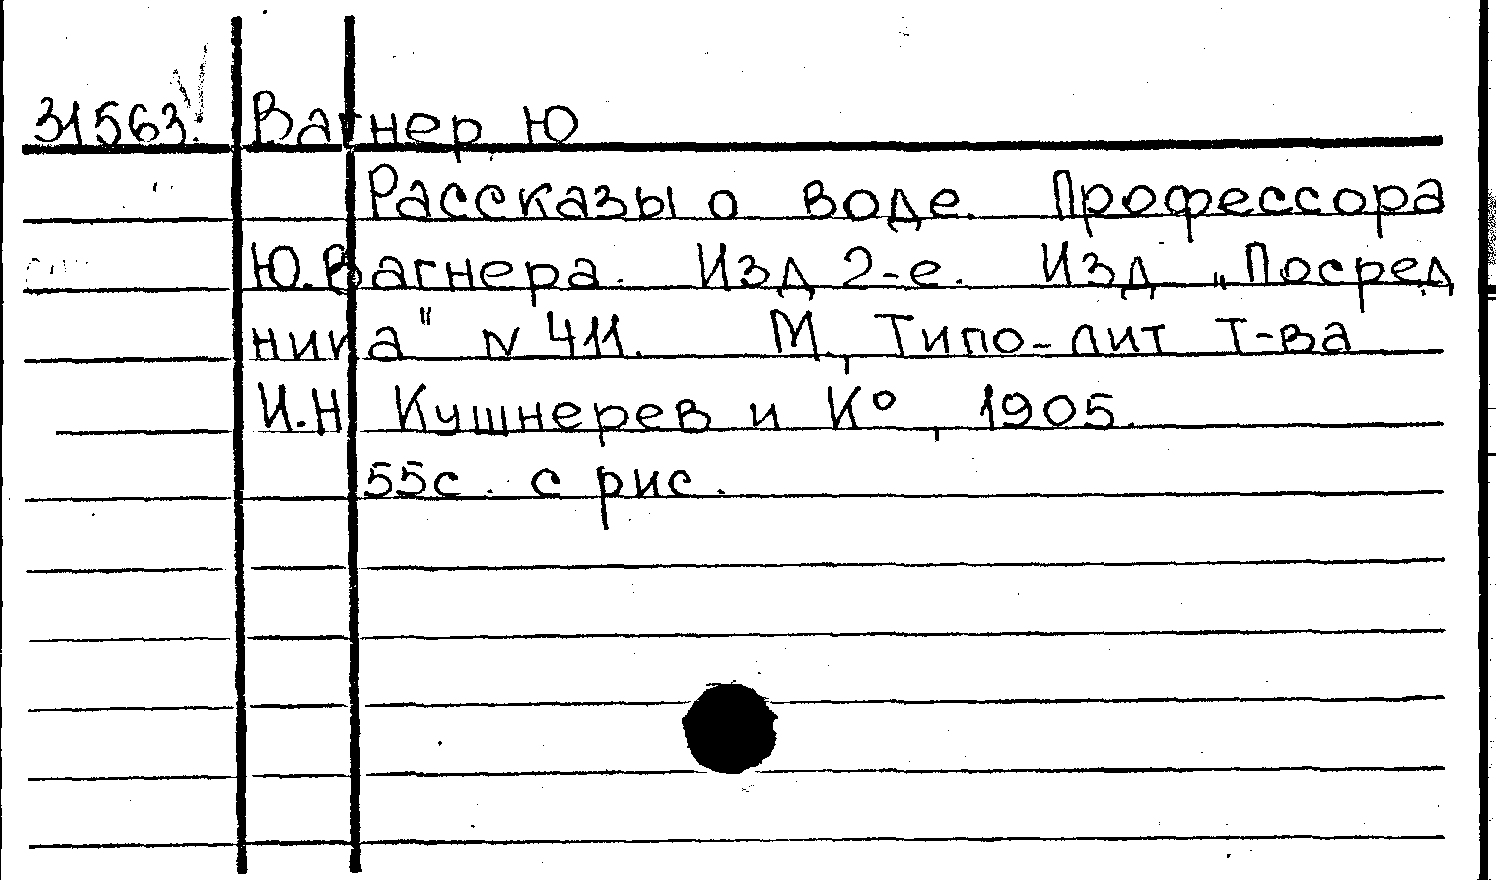 31563. Вагнер Ю
Рассказы о воде. Профессора
Ю. Вагнера. Изд 2-е. Изд „Посред
ника" N 411. М., Типо-лит Т-ва
И.Н Кушнерев и К°, 1905.
55с. с рис.